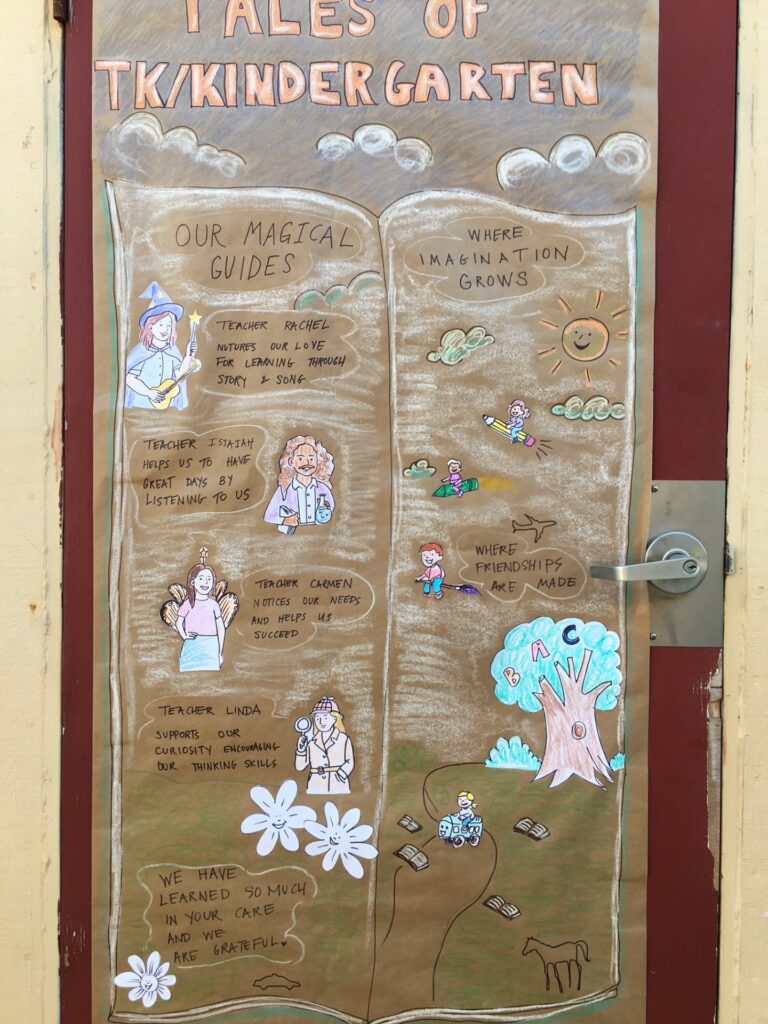 TALES OF
TK/KINDERGARTEN
OUR MAGICAL
GUIDES
TEACHER RACHEL
NUTURES OUR LOVE
FOR LEARNING THROUGH
STORY & SONG
TEACHER ISSAIAH
HELPS US TO HAVE
GREAT DAYS BY
LISTENING TO US
TEACHER CARMEN
NOTICES OUR NEEDS
AND HELPS US
SUCCEED
TEACHER LINDA
SUPPORTS OUR
CURIOSITY ENCOURAGING
OUR THINKING SKILLS
WE HAVE
LEARNED SO MUCH
IN YOUR CARE.
AND WE
ARE GRATEFUL.
WHERE
IMAGINATION
GROWS
WHERE
FRIENDSHIPS
ARE MADE
B A C